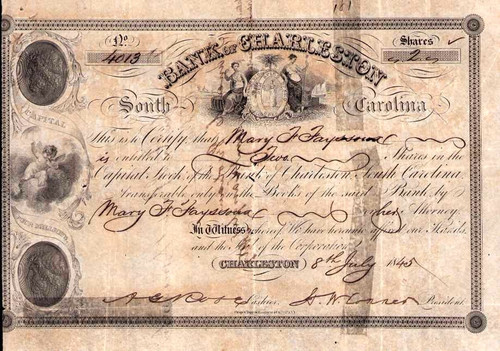 No. Shares
4013 2
BANK OF CHARLESTON
South Carolina
CAPITAL
This is to Certify that Mary F Fayssoux
is entitled to Two Shares in the
Capital Stock of the Bank of Charleston South Carolina
transferable only on the Books of the said Bank by
Mary F Fayssoux or her Attorney.
In Witness whereof We have hereunto affixed our Hands
and the Seal of the Corporation
CHARLESTON 8th July 1845
A G Rose Cashier. H W Conner President